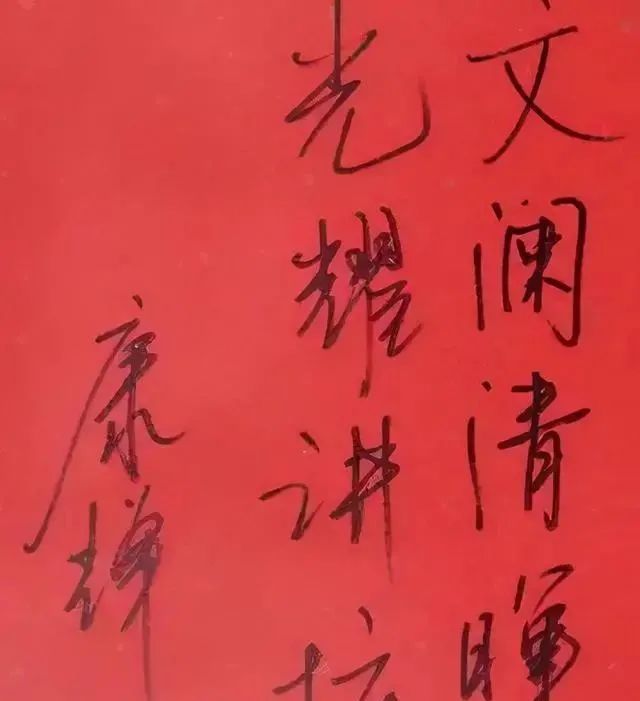 文澜清晖
光耀讲
康辉